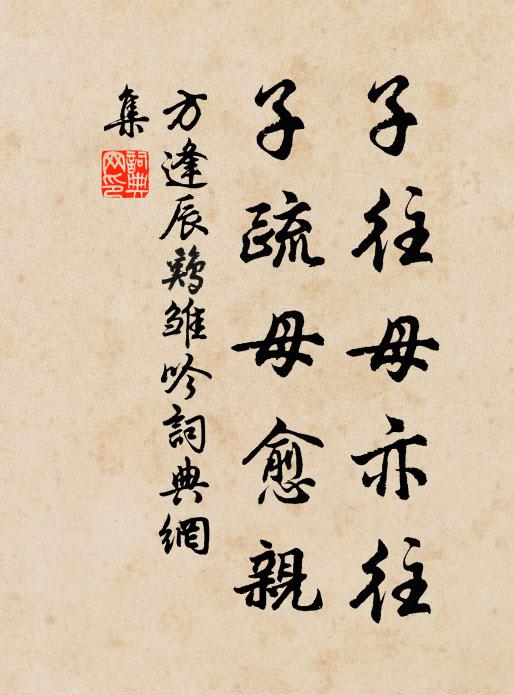 子往母亦往
子疏母愈親
方逢辰鷄雏吟詞典網
集
詞典
网印